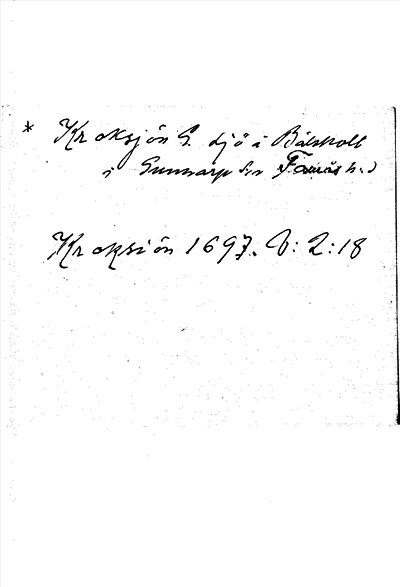 * Kroksjön S. sjö å Bälshult
i Gunnarp sn Faurås hd
Kroksiön 1697. V: 2:18